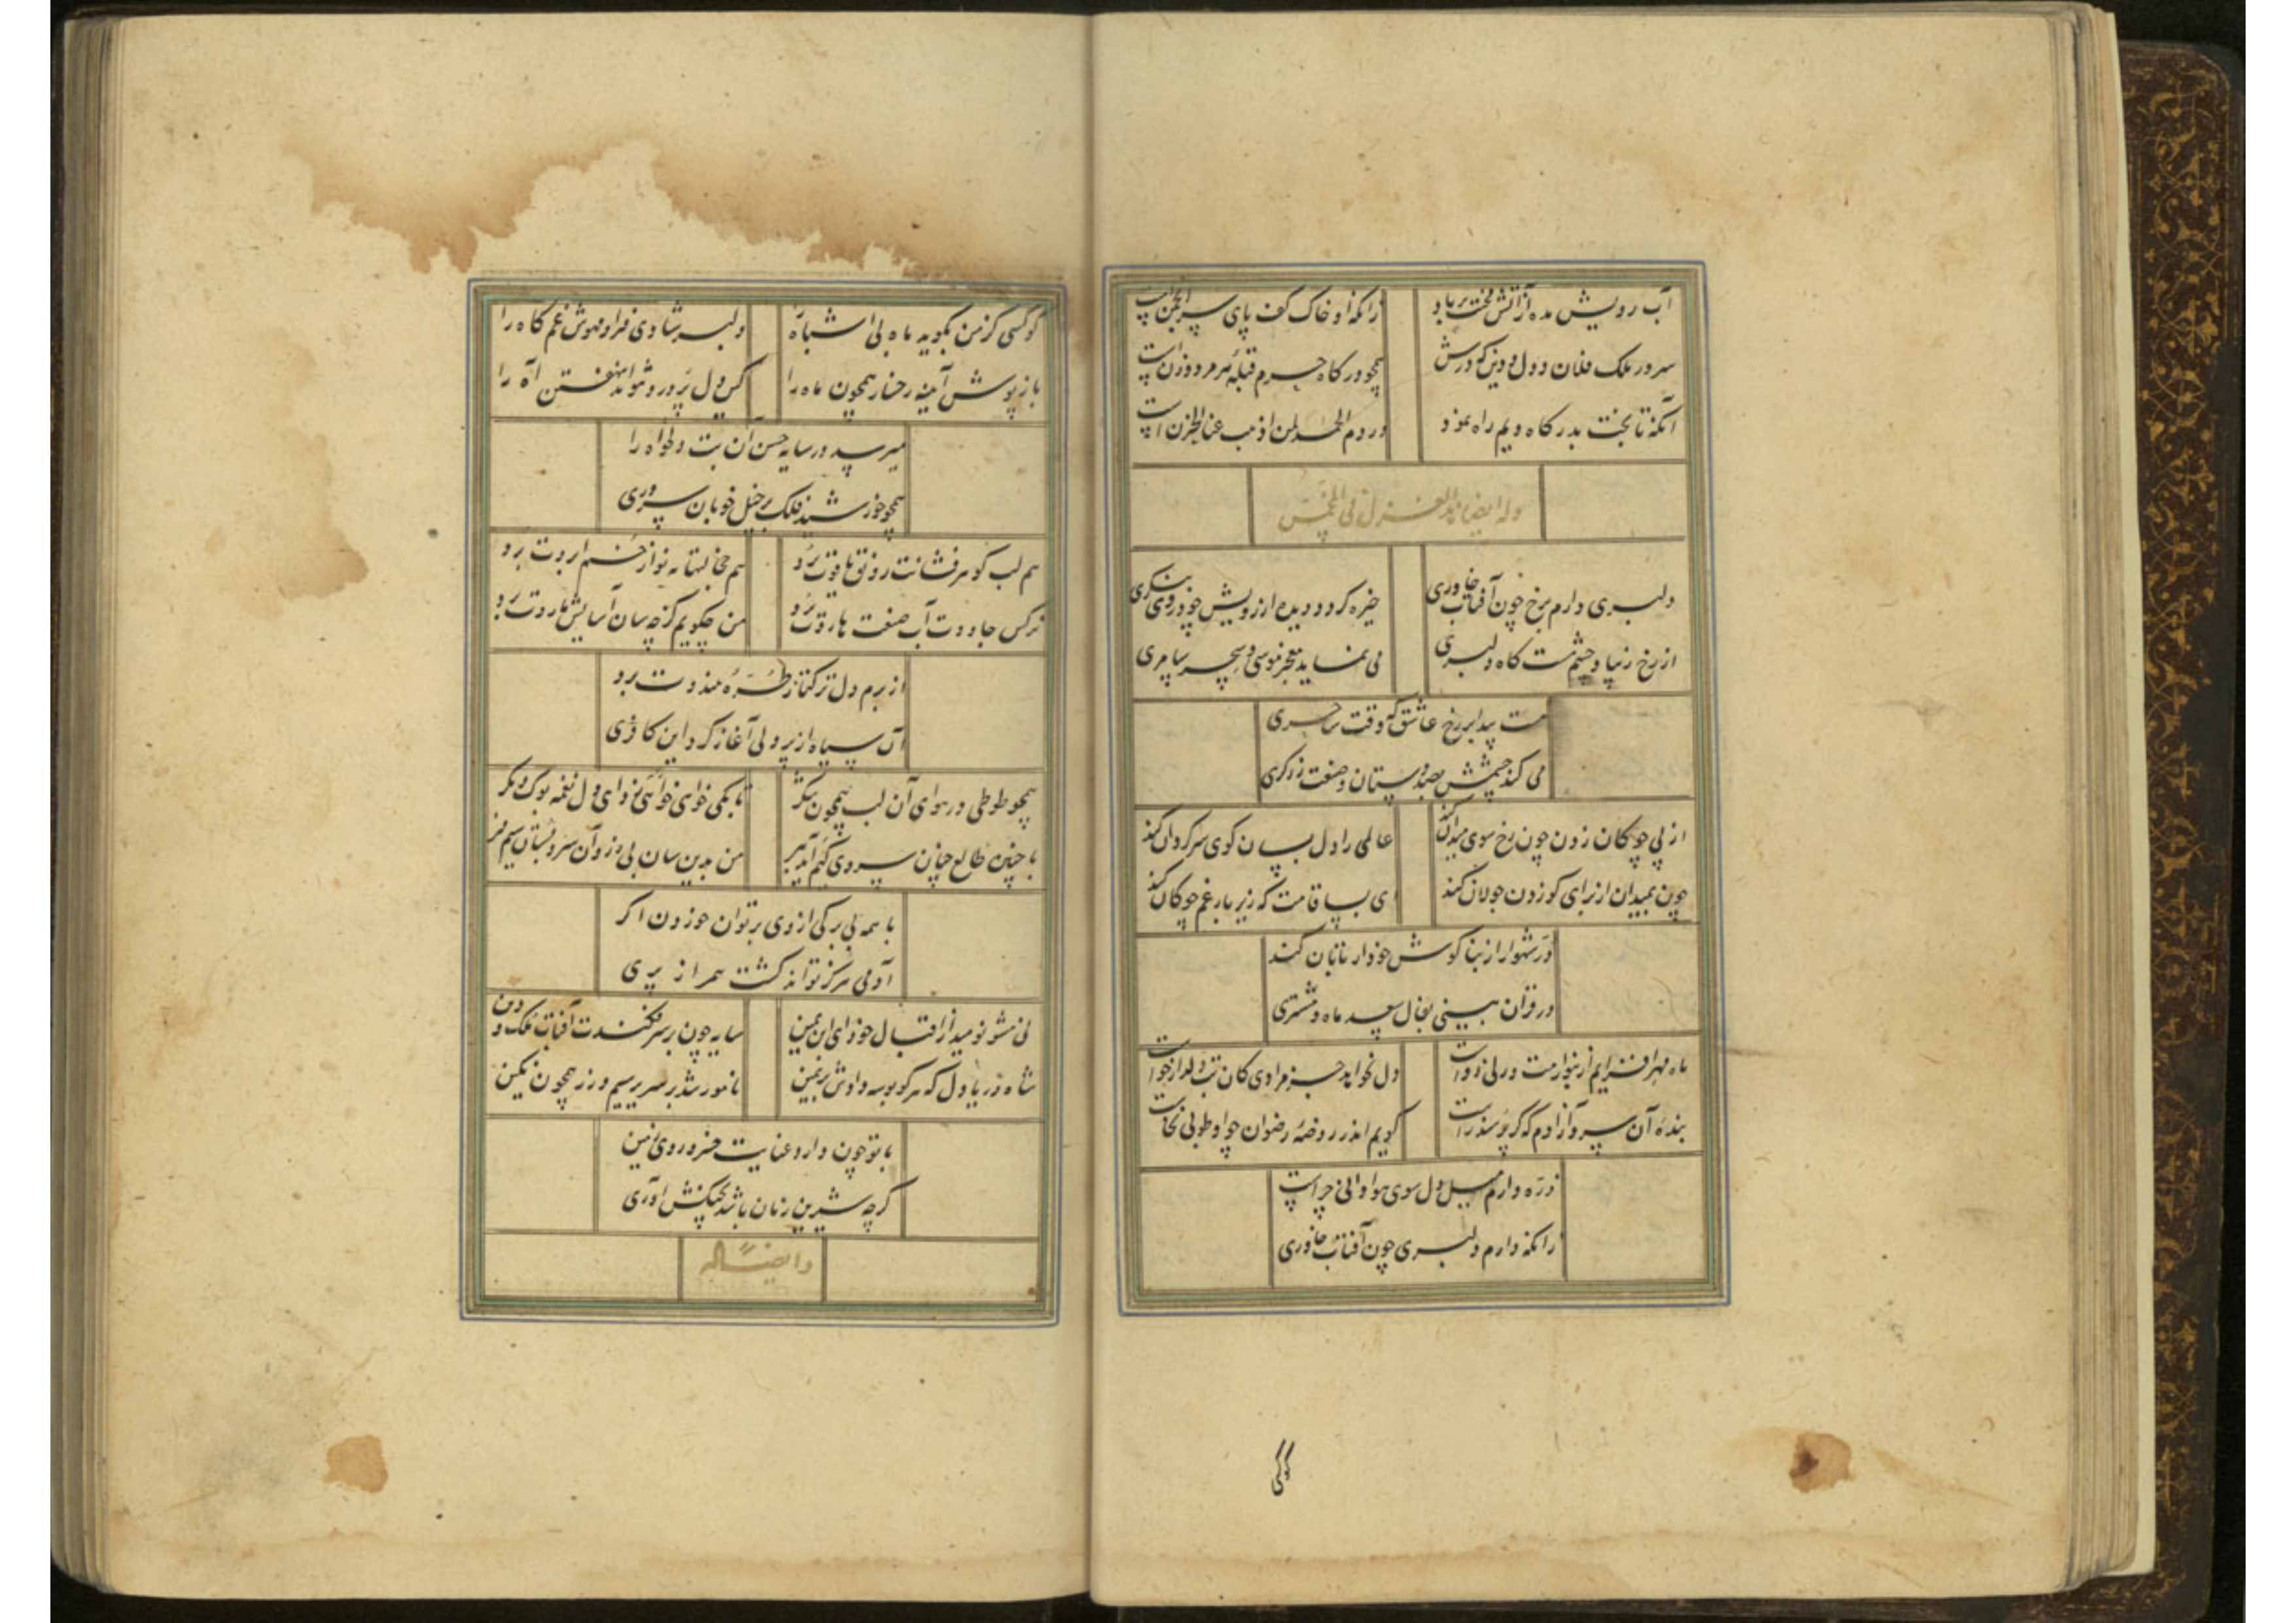 آب رویش مده از آتش محنت بر باد
زانکه او خاک کف پای سر انجمن است
سرور ملک فلان و دول و دین که درش
همچو درگاه حرم قبله هر مرد و زن است
آنکه تا بخت بدرگاه ویم راه نمود
وردم الحمد لمن اذهب عنا الحزن است
وله ایضا هذا الغزل فی المخمس
دلبری دارم برخ چون آفتاب خاوری
خیره گردد دیده از رویش چو در وی بنگری
از رخ زیبا و چشم مست گاه دلبری
می نماید معجز موسی و سحر سامری
هست پیدا بر رخ عاشق که وقت ساحری
می کند چشمش بصد دستان و صنعت زرگری
از پی چوگان زدن چون رخ سوی میدان کند
عالمی را دل بسان گوی سرگردان کند
چون بمیدان از برای گو زدن جولان کند
ای بسا قامت که زیر بار غم چوگان کند
در شهوار از بنا گوش خود ار تابان کند
در قران بینی بفال سعد ماه و مشتری
ماه مهر افزایم ار بنوازمت در پی
دل نخواهد جز مرادی کان بت دلدار خواست
بنده آن سرو آزادم که گر پرسند راست
گویم اندر روضه رضوان چو او طوبی نخاست
ذره دارم میل دل سوی هوا دانی چراست
زانکه دارم دلبری چون آفتاب خاوری
کو کسی
کو کسی کز من بگوید ماه بی اشباه را
دلبر شادی فزا و مهوش غم کاه را
باز پوش آیینه رخسار همچون ماه را
کس دل پر درد نتواند نهفتن آه را
میرسد در سایه حسن آن بت دلخواه را
همچو خورشید فلک بر خیل خوبان سروری
هم لب گوهر فشانت رونق یاقوت برد
هم
نرگس جادوت آب صنعت هاروت برد
من چگویم کز چه سان آسایش هاروت برد
از برم دل ترکتاز طره هندوت برد
آن سیاه از پر دلی آغاز کرد این کافری
همچو طوطی در هوای آن لب همچون شکر
تا بکی خواهی نوای دل نغمه بوک و مگر
با چنین طالع چنان سروی کیم آید ببر
من بدین سان بی زر و آن سرو بستان سیم بر
با همه بی برگی از وی بر توان خوردن اگر
آدمی هرگز تواند گشت همراز پری
نی مشو نومید از اقبال خود ای ابن یمین
سایه چون بر سر فکندت آفتاب ملک و دین
شاه دریا دل که هر کو بوسه دادش بر یمین
نامور شد بر سریر سیم و زر همچون نگین
با تو چون دارد عنایت خسرو روی زمین
گرچه شیرین زمان باشد بچنگش آوری
و ایضا له